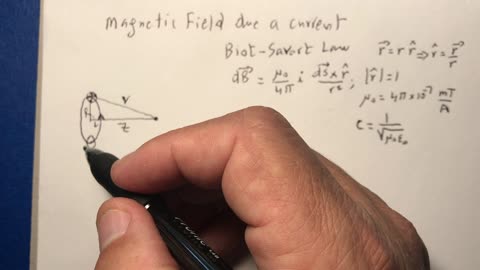 Magnetic Field due a current
Biot-Savart Law r⃗ = r r̂ ⇒ r̂ = r⃗/r
dB⃗ = μ₀/4π i dS⃗ × r̂/r² ; |r̂| = 1
μ₀ = 4π × 10⁻⁷ mT/A
c = 1/√μ₀ε₀
r
R
z